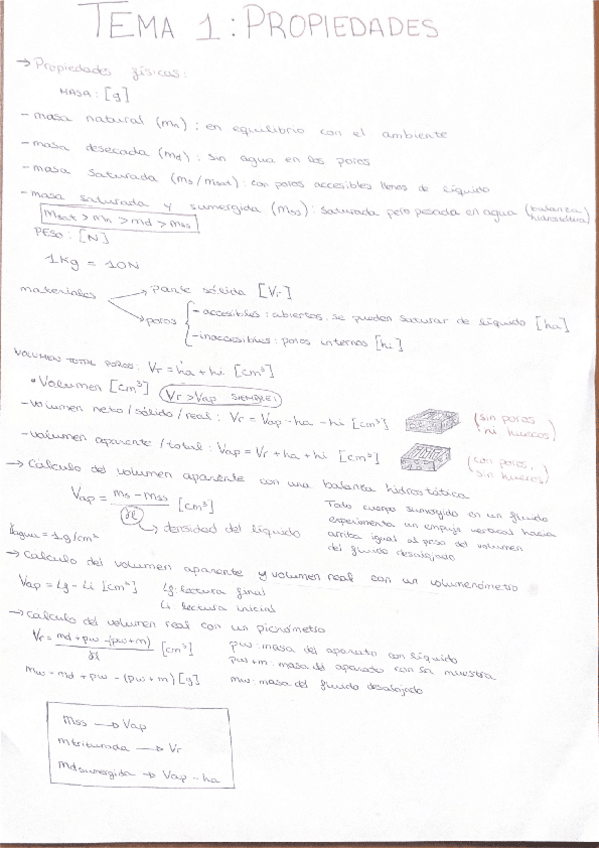 TEMA 1: PROPIEDADES
→ Propiedades físicas:
MASA: [g]
- masa natural (mn): en equilibrio con el ambiente
- masa desecada (md): sin agua en los poros
- masa saturada (ms/msat): con poros accesibles llenos de líquido
- masa saturada y sumergida (mss): saturada pero pesada en agua (balanza hidrostática)
msat > mn > md > mss
PESO: [N]
1Kg = 10N
materiales → parte sólida [Vr]
→ poros { - accesibles: abiertos, se pueden saturar de líquido [ha]
- inaccesibles: poros internos [hi]
VOLUMEN TOTAL POROS: Vr = ha + hi [cm³]
• Volumen [cm³] (Vr > Vap SIEMPRE!)
- volumen neto/sólido/real: Vr = Vap - ha - hi [cm³] (sin poros ni huecos)
- volumen aparente/total: Vap = Vr + ha + hi [cm³] (con poros, sin huecos)
→ Cálculo del volumen aparente con una balanza hidrostática
Vap = ms - mss / γl [cm³]
↳ densidad del líquido
Todo cuerpo sumergido en un fluido
experimenta un empuje vertical hacia
arriba igual al peso del volumen
del fluido desalojado
γagua = 1g/cm³
→ Cálculo del volumen aparente y volumen real con un volumenómetro
Vap = Lf - Li [cm³] Lf: lectura final
Li: lectura inicial
→ Cálculo del volumen real con un picnómetro
Vr = md + pw - (pw+m) / γl [cm³] pw: masa del aparato con líquido
pw+m: masa del aparato con la muestra
mw = md + pw - (pw+m) [g] mw: masa del fluido desalojado
mss → Vap
mtriturada → Vr
mdsumergida → Vap - ha